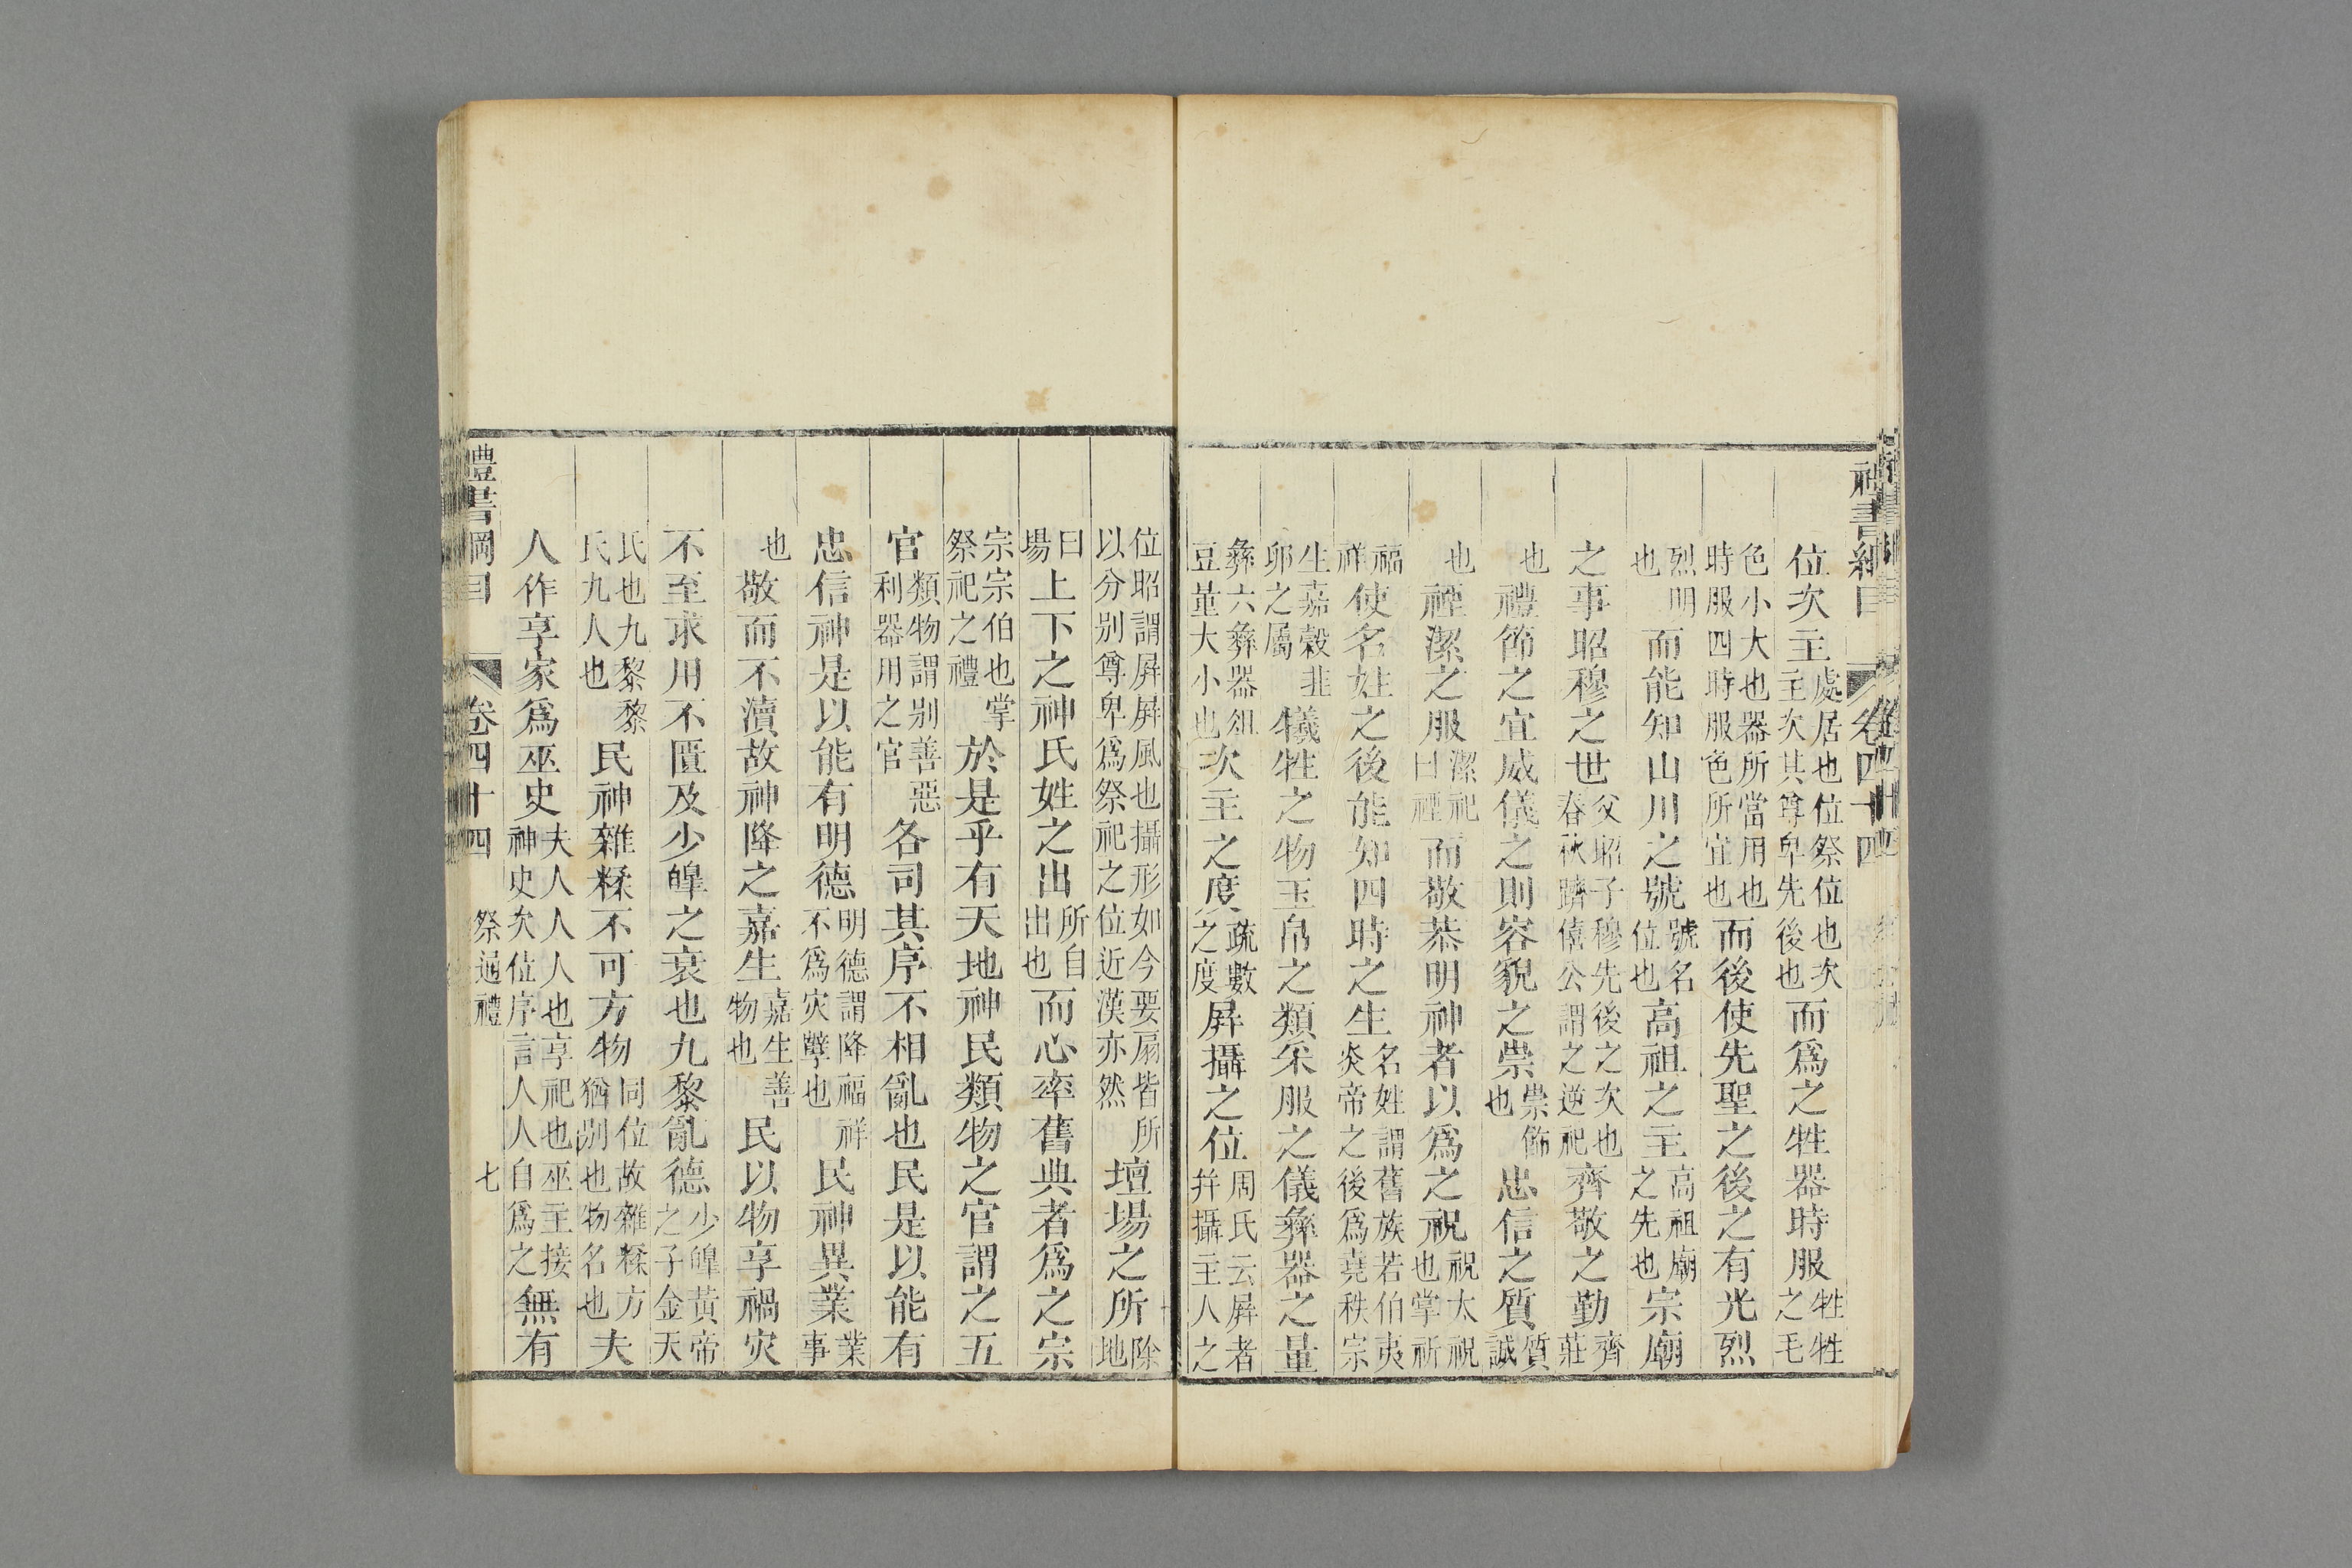 禮書綱目 卷四十四
位次主處居也位祭位也次主次其尊卑先後也而爲之牲器時服牲牲之毛
色小大也器所當用也時服四時服色所宜也而後使先聖之後之有光烈
烈明也而能知山川之號號名位也高祖之主高祖廟之先也宗廟
之事昭穆之世父昭子穆先後之次也春秋躋僖公謂之逆祀齊敬之勤齊莊
也禮節之宜威儀之則容貌之崇崇飾也忠信之質質誠
也禋潔之服潔祀曰禋而敬恭明神者以爲之祝祝太祝也掌祈
福祥使名姓之後能知四時之生名姓謂舊族若伯夷炎帝之後爲堯秩宗
生嘉穀韭卵之屬犧牲之物玉帛之類采服之儀彝器之量
彝六彝器俎豆量大小也次主之度疏數之度屏攝之位周氏云屏者幷攝主人之
位昭謂屏屏風也攝形如今要扇皆所以分别尊卑爲祭祀之位近漢亦然壇場之所除地
曰場上下之神氏姓之出所自出也而心率舊典者爲之宗
宗宗伯也掌祭祀之禮於是乎有天地神民類物之官謂之五
官類物謂别善惡利器用之官各司其序不相亂也民是以能有
忠信神是以能有明德明德謂降福祥不爲灾孽也民神異業業事
也敬而不瀆故神降之嘉生嘉生善物也民以物享禍灾
不至求用不匱及少皥之衰也九黎亂德少皥黃帝之子金天
氏也九黎黎氏九人也民神雜糅不可方物同位故雜糅方猶别也物名也夫
人作享家爲巫史夫人人人也享祀也巫主接神史次位序言人人自爲之無有
禮書綱目 卷四十四 祭通禮 七